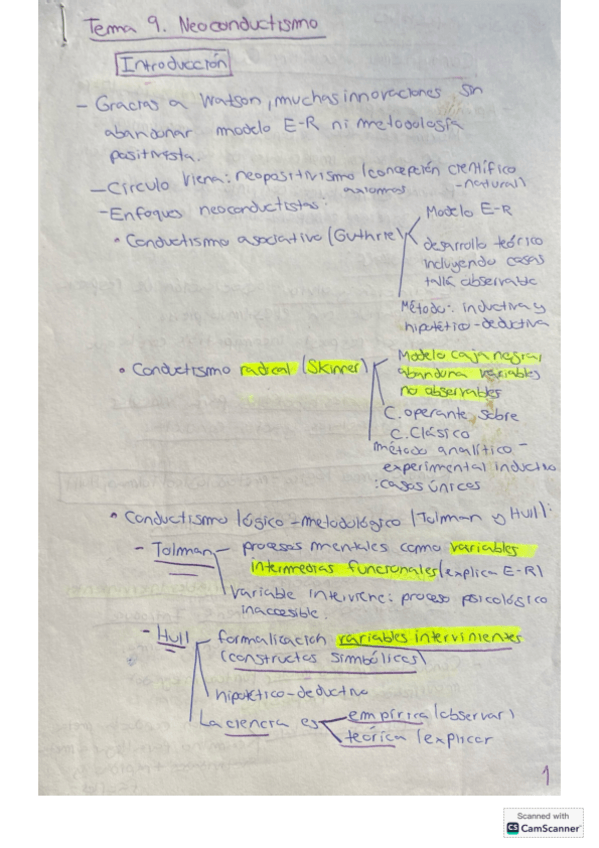 Tema 9. Neoconductismo
Introducción
- Gracias a Watson, muchas innovaciones sin
abandonar modelo E-R ni metodología
positivista.
- Círculo Viena: neopositivismo (concepción científico
axiomas -natural)
- Enfoques neoconductistas:
• Conductismo asociativo (Guthrie)
Modelo E-R
desarrollo teórico
incluyendo cosas
observable
Método: inductiva y
hipotético-deductiva
• Conductismo radical (Skinner)
Modelo caja negra,
abandona variables
no observables
C. operante sobre
C. Clásico
método analítico-
experimental inductivo
: casos únicos
• Conductismo lógico-metodológico (Tolman y Hull):
- Tolman
procesos mentales como variables
intermedias funcionales (explica E-R)
Variable interviene: proceso psicológico
inaccesible.
- Hull
formalización variables intervinientes
(constructos simbólicos)
hipotético-deductivo
La ciencia es
empírica (observar)
teórica (explicar
1
Scanned with
CS CamScanner